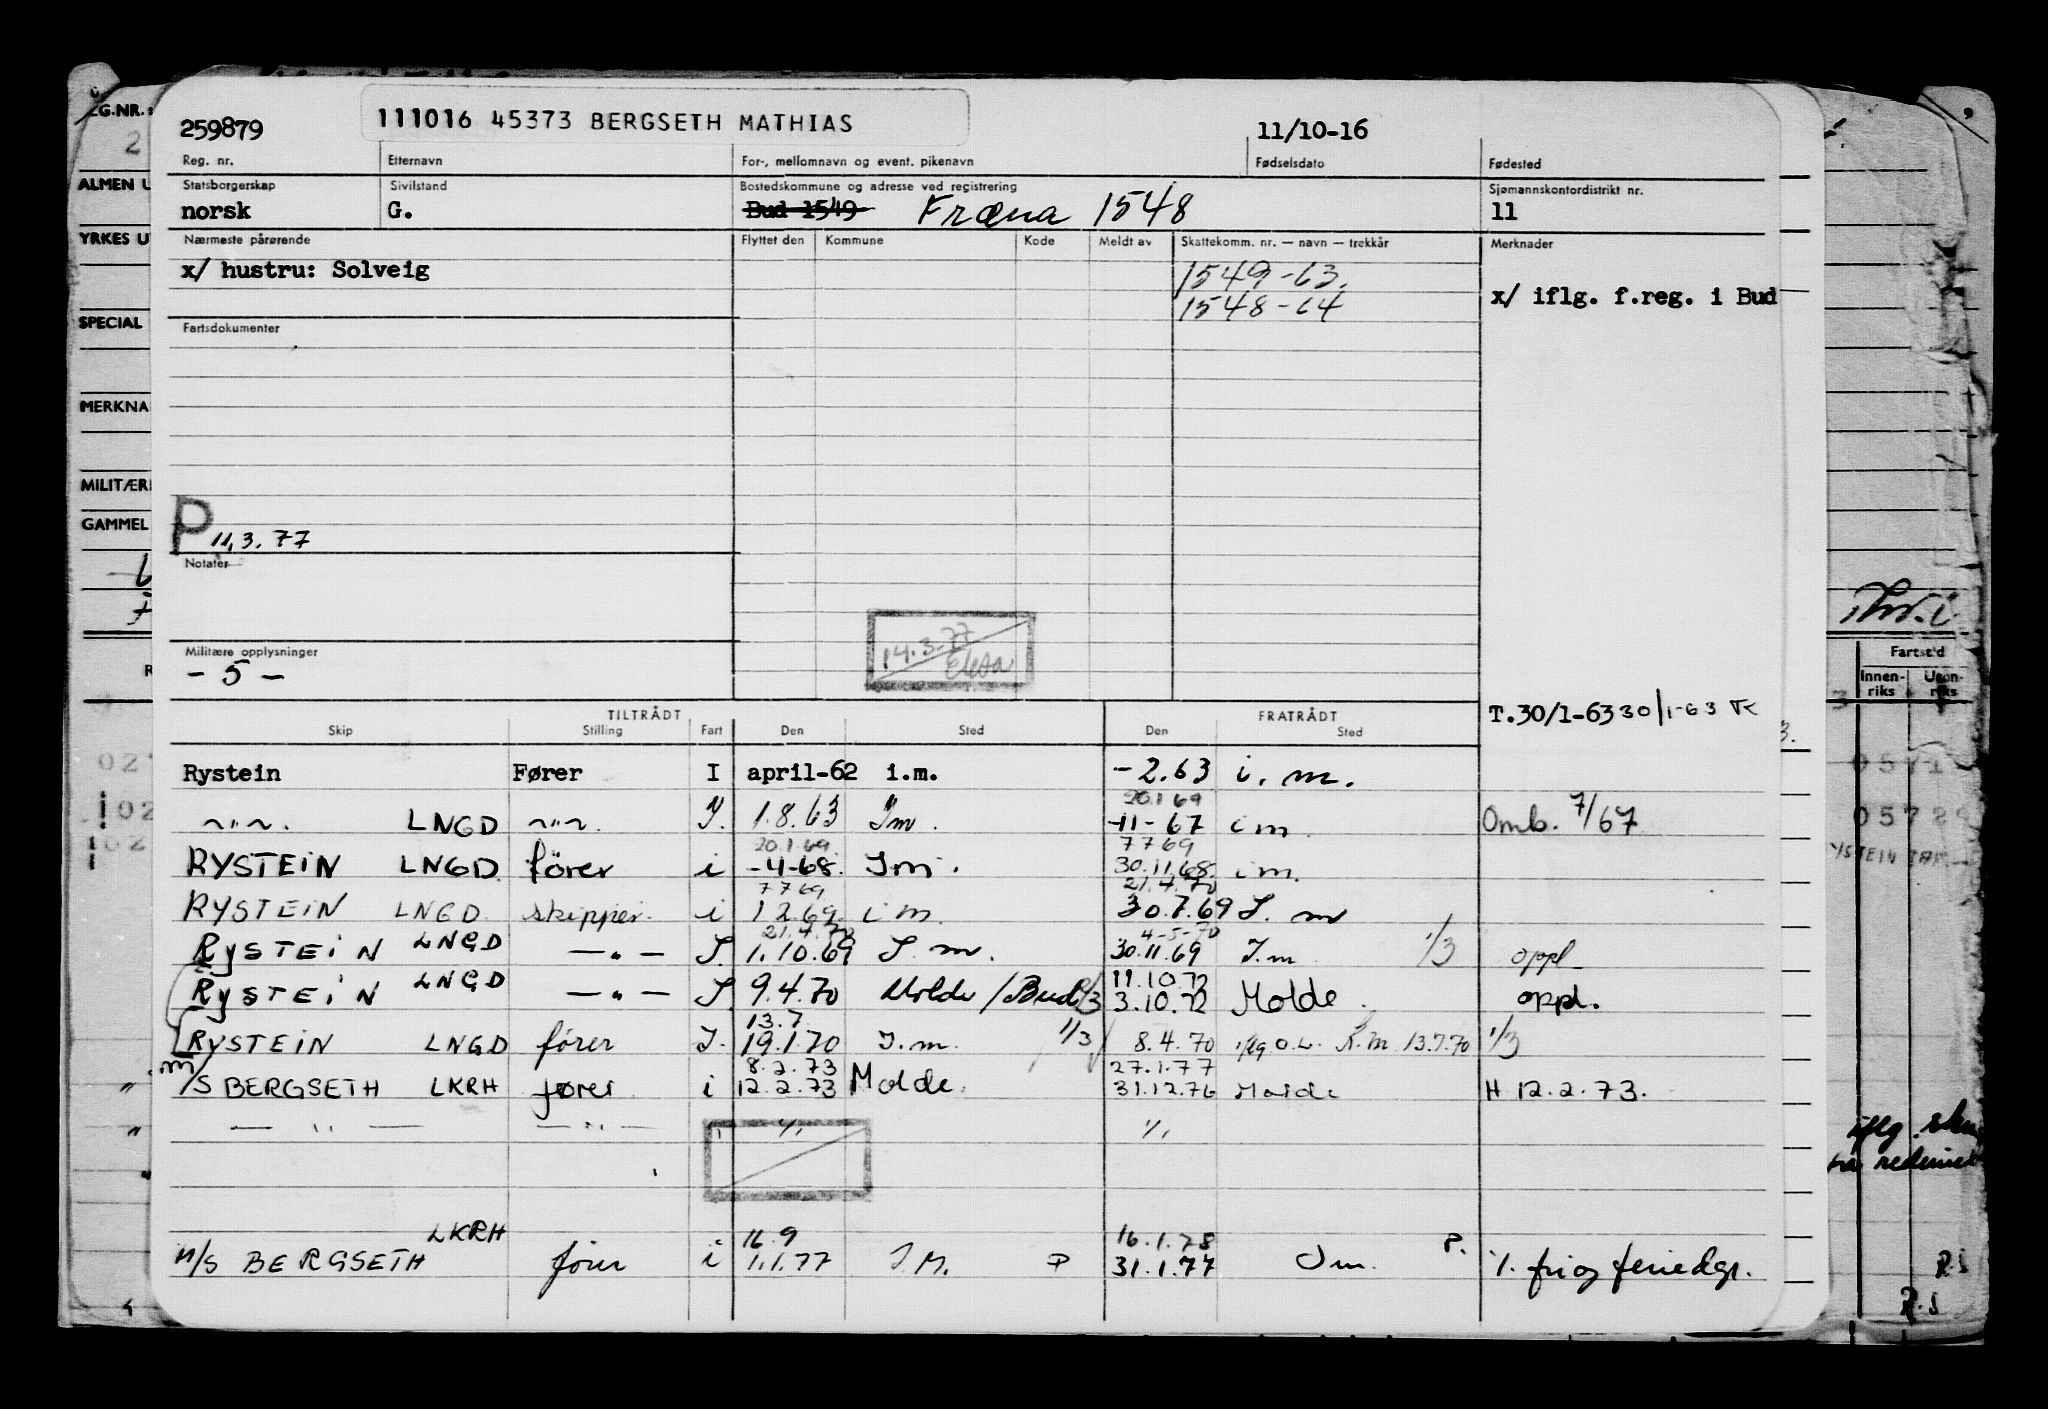 259879 111016 45373 BERGSETH MATHIAS 11/10-16
Reg. nr. Etternavn For-, mellomnavn og event. pikenavn Fødselsdato Fødested
Statsborgerskap Sivilstand Bostedskommune og adresse ved registrering Sjømannskontordistrikt nr.
norsk G. Bud 1549 Fræna 1548 11
Nærmeste pårørende Flyttet den Kommune Kode Meldt av Skattekomm. nr. — navn — trekkår Merknader
x/ hustru: Solveig 1549-63.
1548-64 x/ iflg. f.reg. i Bud
Fartsdokumenter
P 11.3.77
Notater
14.3.77
Militære opplysninger
- 5 -
TILTRÅDT FRATRÅDT T.30/1-63 30/1-63
Skip Stilling Fart Den Sted Den Sted
Rystein Fører I april-62 i.m. -2.63 i.m.
20.1 69
—"—. LNGD —"—. I. 1.8.63 Im. -11-67 im. Omb. 7/67
20.1.69 7 7 69
RYSTEIN LNGD fører i -4-68. Im. 30.11.68. im.
7 7 69 21.4.70
RYSTEIN LNGD skipper. i 1 2.69. im. 30.7.69 I. m
21.4.70 4-5-70
RYSTEIN LNGD —"— I. 1.10.69 I. m. 30.11.69 I.m 1/3 oppl
11.10.72
RYSTEIN LNGD —"— I. 9.4.70 Molde/Bud 3.10.72 Molde. oppl.
13.7.
RYSTEIN LNGD fører I. 19.1.70 I.m. 1/3 8.4.70 13.7.70 1/3
8.2.73 27.1.77
M/S BERGSETH LKRH fører i 12.2.73 Molde. 31.12.76 Molde H 12.2.73.
— " — — " —
LKRH 16.9 16.1.78
M/S BERGSETH fører i 1.1.77 I.M. P 31.1.77 Im. P. fri og feriedgr.
ALMEN U
YRKES U
SPECIAL
MERKNA
MILITÆR
GAMMEL
Fartstid
Innen-
riks
iflg.
R.S
R.S